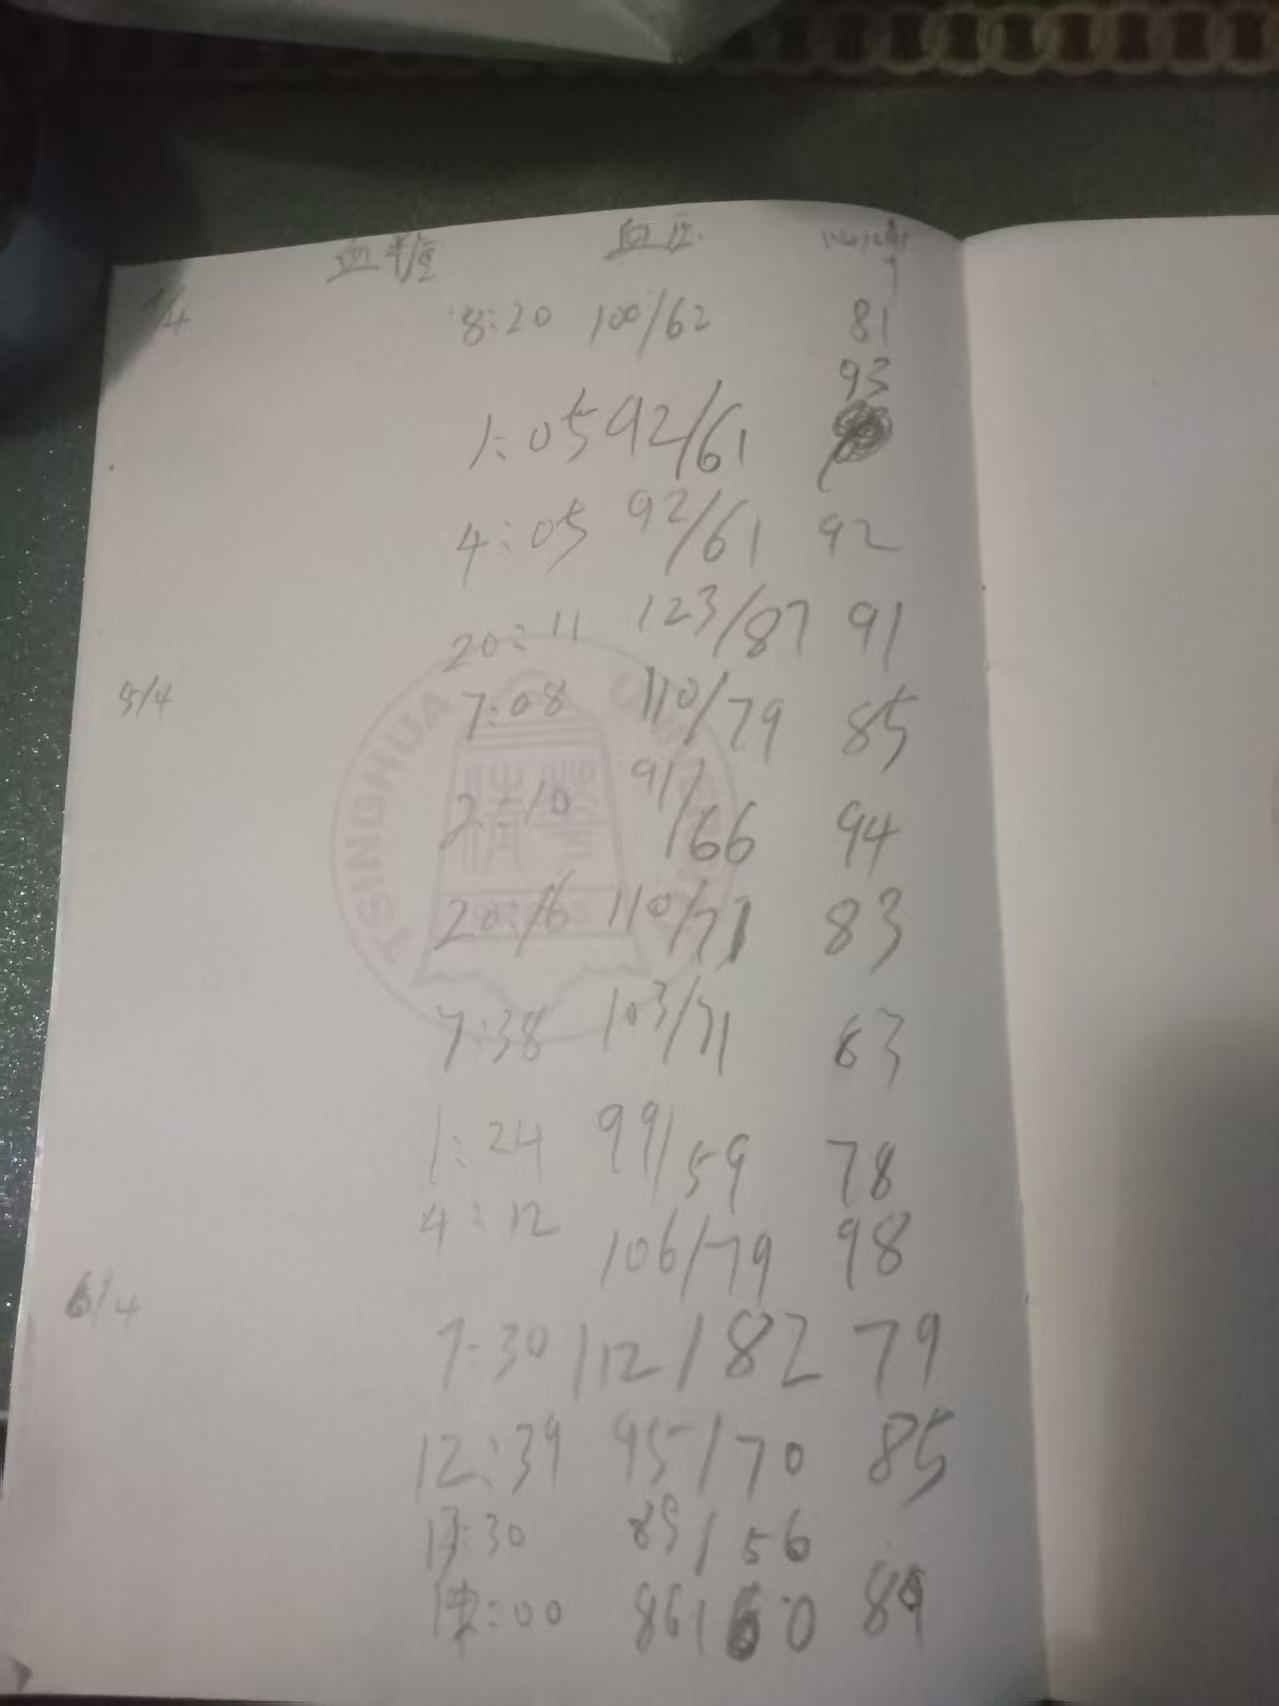 血糖 血压 心率
/4 8:20 100/62 81
93
1:05 92/61
4:05 92/61 92
20:11 123/87 91
5/4 7:08 110/79 85
2:10 91/66 94
20:16 110/71 83
7:38 103/71 63
1:24 99/59 78
4:12 106/79 98
6/4
7:30 112/82 79
12:39 95/70 85
:30 89/56
:00 86/60 89
TSINGHUA
清華